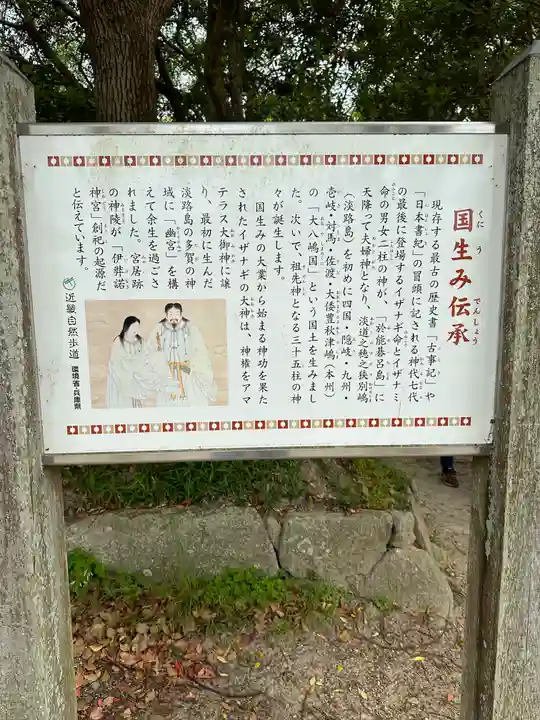 国生み伝承
くにうでんしょう
現存する最古の歴史書「古事記」や
「日本書紀」の冒頭に記される神代七代
の最後に登場するイザナギ命とイザナミ
命の男女二柱の神が、「於能碁呂島」に
天降って夫婦神となり、淡道之穂之狭別嶋
(淡路島)を初め、四国・隠岐・九州・
壱岐・対馬・佐渡・大倭豊秋津嶋(本州)
の「大八嶋国」という国土を生みまし
た。次いで、祖先神となる三十五柱の神
々が誕生します。
国生みの大業から始まる神功を果た
されたイザナギの大神は、神権をアマ
テラス大御神に譲
り、最初に生んだ
淡路島の多賀の神
域に「幽宮」を構
えて余生を過ごさ
れました。宮居跡
の神陵が「伊弉諾
神宮」創祀の起源だ
と伝えています。
近畿自然歩道
環境省・兵庫県